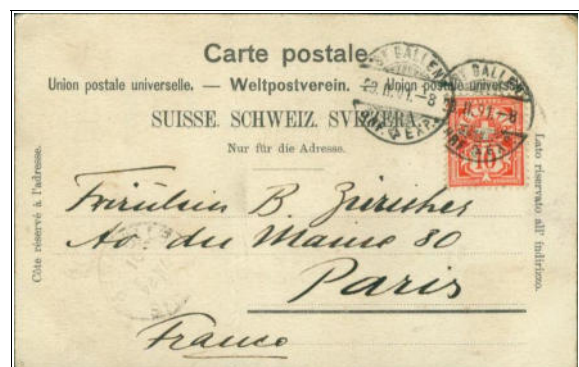 Carte postale.
Union postale universelle. — Weltpostverein. — Unione postale universale
SUISSE. SCHWEIZ. SVIZZERA.
Nur für die Adresse.
Côte réservé à l'adresse.
Lato riservato all' indirizzo.
ST GALLEN
BRF. EXP.
10
Fräulein B Züricher
Av. du Maine 80
Paris
France